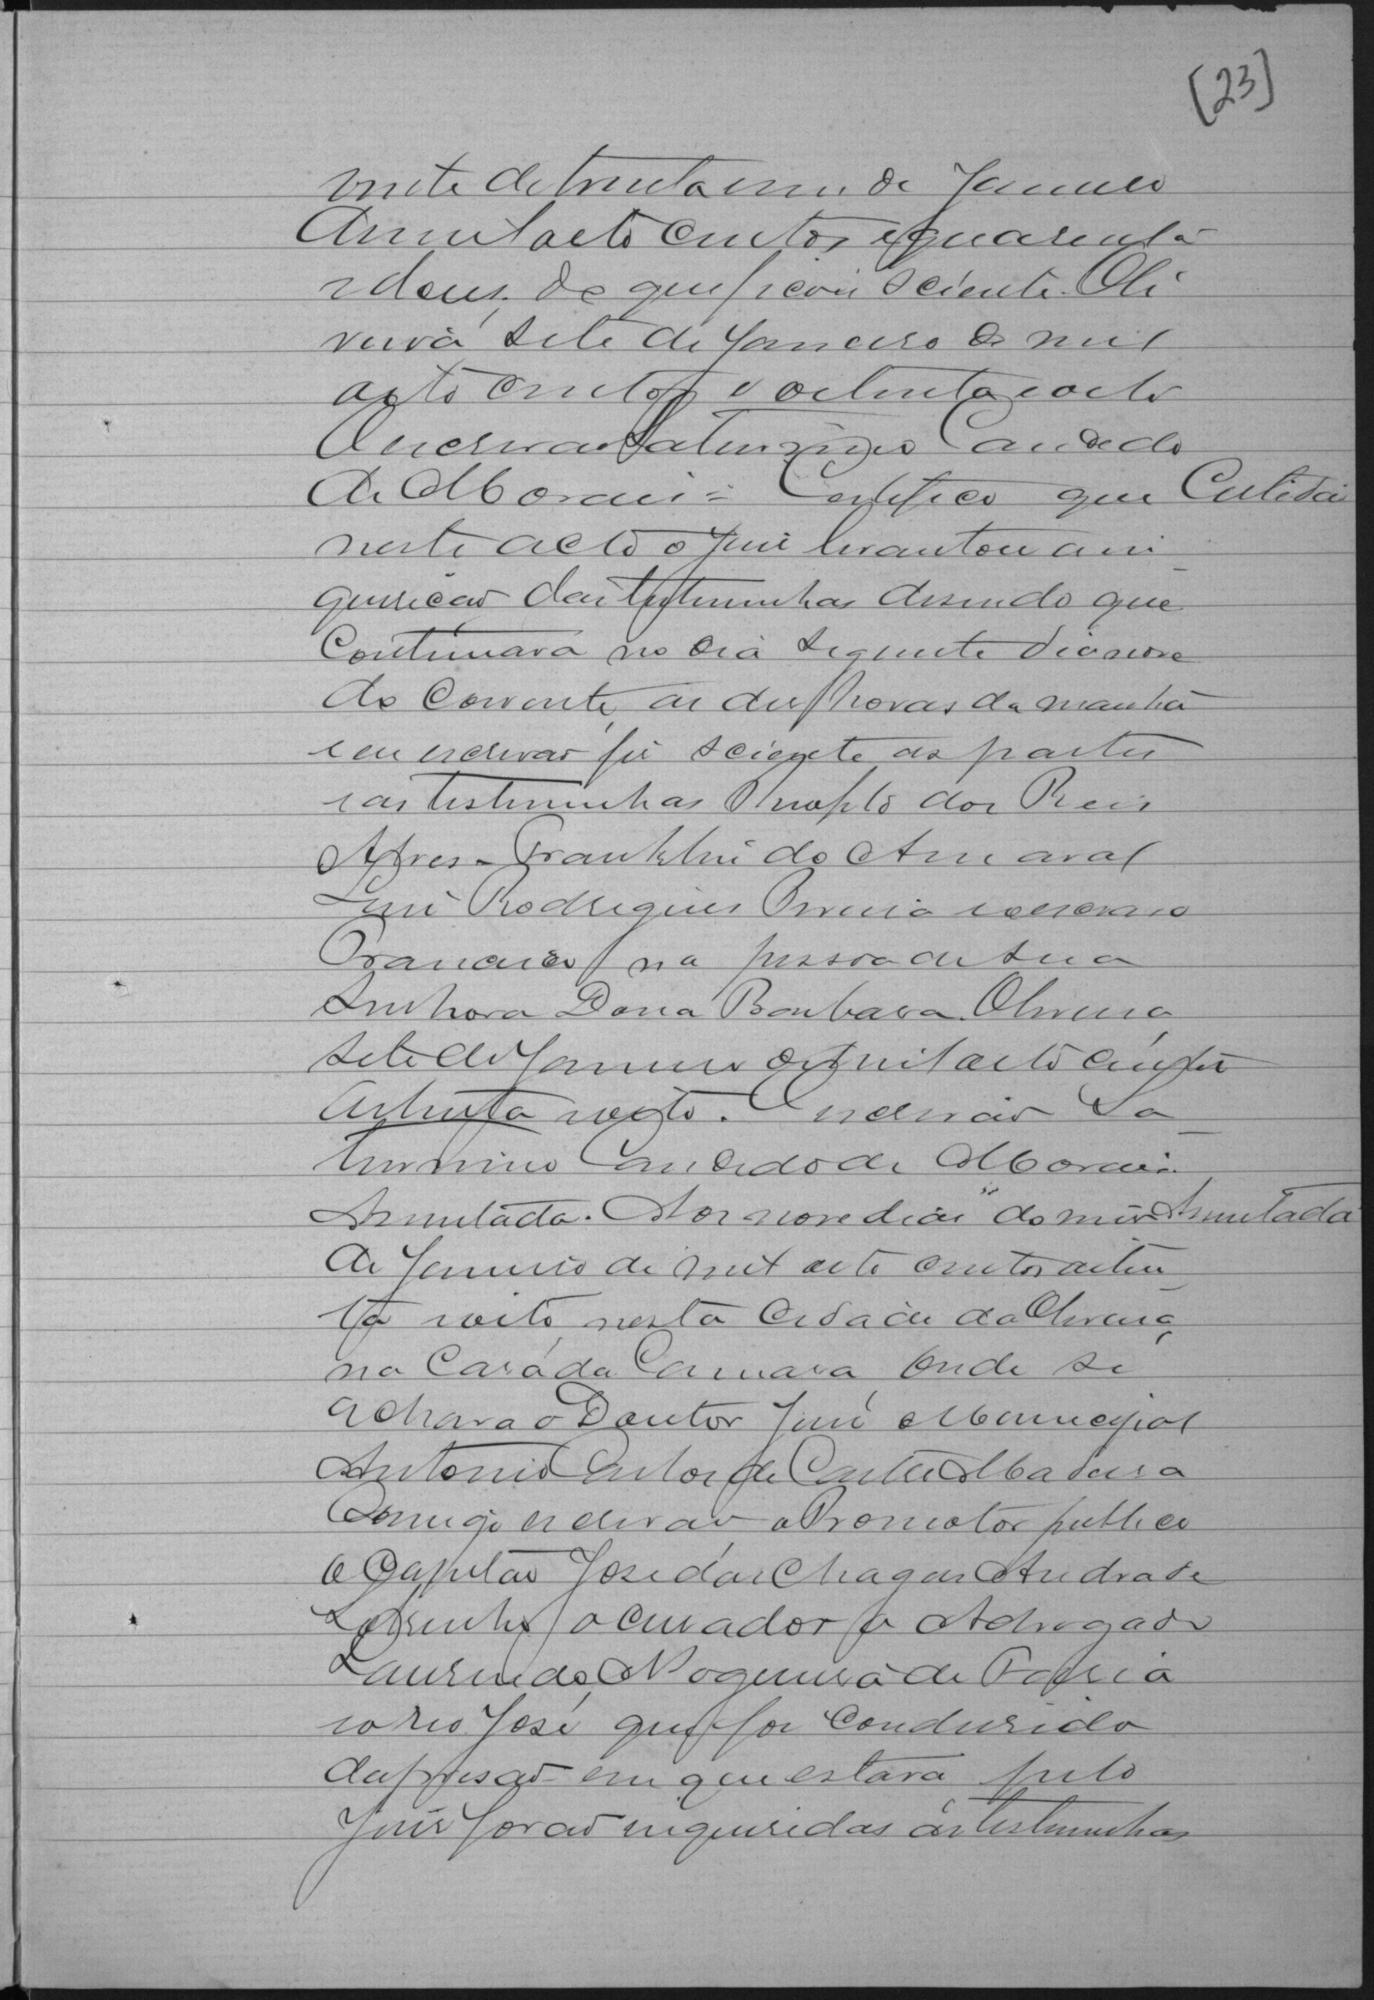 [23]
vinte de trinta e um de Janeiro
de mil oito centos e quarenta
e dous, do que ficou sciente. Oli
veira sete de Janeiro de mil
oito centos e oitenta e oito
O escrivão Saturnino Candido
de Moraes = Certifico que Certidão
neste acto o Juiz levantou a in
quirição das testemunhas disendo que
Continuava no dia seguinte dia nove
do Corrente, as dez horas da manhã
e eu escrivão fiz sciente as partes
e as testemunhas dos Reis
Alves - Franklin do Amaral
Luis Rodrigues
Francisco na pessoa de sua
Senhora Dona Barbara. Oliveira
sete de Janeiro de mil oito centos
oitenta e oito. O escrivão Sa
turnino Candido de Moraes
Assentada. Aos nove dias do mez Assentada
de Janeiro de mil oito centos oiten
ta e oito, nesta Cidade da Oliveira,
na Casa da Camara onde se
achava o Doutor Juiz Municipal
Antonio Carlos de Castro Madeira
Comigo escrivão o Promotor publico
o Capitão José das Chagas Andrade
Sobrinho, o curador o Advogado
Laurindo Nogueira de Faria
e o reo José que foi Condusido
da prisão em que estava, pelo
Juiz forão inqueridas as testemunhas